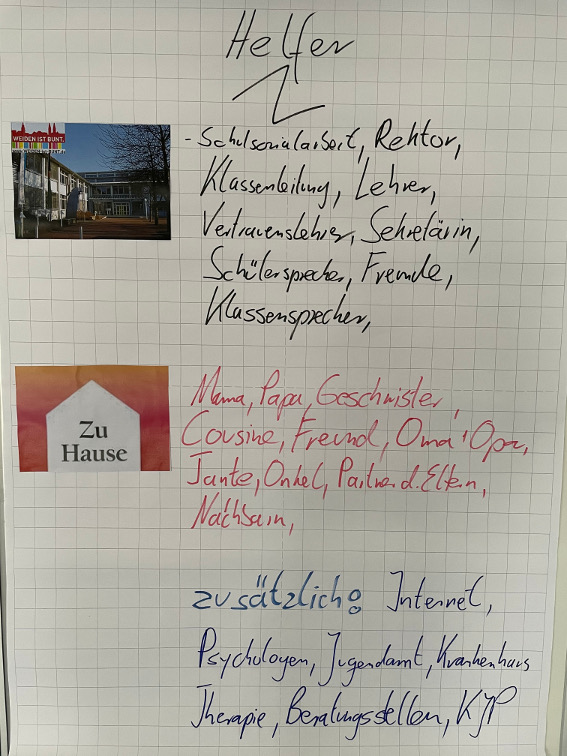 Helfer
WEIDEN IST BUNT.
- Schulsozialarbeit, Rektor,
Klassenleitung, Lehrer,
Vertrauenslehrer, Sekretärin,
Schülersprecher, Freunde,
Klassensprecher,
Zu
Hause
Mama, Papa, Geschwister,
Cousine, Freund, Oma + Opa,
Tante, Onkel, Partner d. Eltern,
Nachbarn,
zusätzlich: Internet,
Psychologen, Jugendamt, Krankenhaus
Therapie, Beratungsstellen, KJP